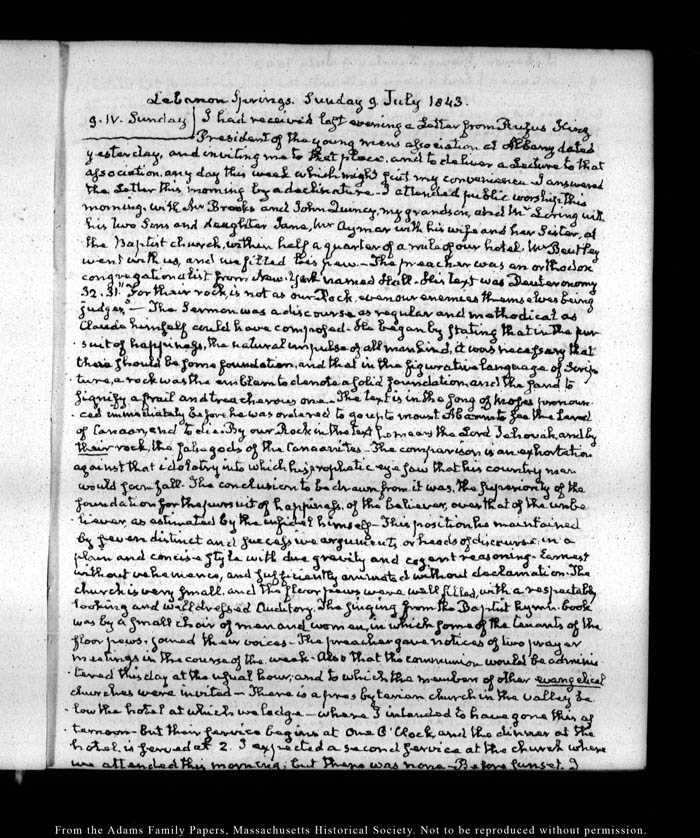 Lebanon Springs. Sunday 9 July 1843.
9. IV. Sunday I had received last evening a Letter from Rufus King
President of the young mens association at Albany dated
yesterday, and inviting me to that place, and to deliver a Lecture to that
association, any day this week which might suit my convenience. I answered
the Letter this morning by a declinature. I attended public worship this
morning, with Mr Brooks and John Quincy, my grandson, and Mr Loring with
his two Sons and daughter Jane, Mr Aymar with his wife and her Sister, at
the Baptist church, within half a quarter of a mile of our hotel. Mr Bentley
went with us, and we filled his pew. The preacher was an orthodox
congregationalist from New-York named Hall. His text was Deuteronomy
32. 31. "For their rock is not as our Rock, even our enemies themselves being
judges." The Sermon was a discourse as regular and methodical as
Claude himself could have composed. He began by stating that in the pur
suit of happiness, the natural impulse of all mankind, it was necessary that
there should be some foundation, and that in the figurative language of Scrip
ture, a rock was the emblem to denote a solid foundation, and the sand to
signify a frail and treacherous one. The text is in the song of Moses pronoun
ced immediately before he was ordered to go up to mount Abarim to see the Land
of Canaan, and to die. By our Rock in the text he means the Lord Jehovah, and by
their rock, the false gods of the Canaanites. The comparison is an exhortation
against that idolatry into which his prophetic eye saw that his country men
would soon fall. The conclusion to be drawn from it was, the superiority of the
foundation for the pursuit of happiness, of the believer, over that of the unbe
liever, as estimated by the infidel himself. This position he maintained
by seven distinct and successive arguments, or heads of discourse, in a
plain and concise style with due gravity and cogent reasoning. Earnest
without vehemence, and sufficiently animated without declamation. The
church is very small, and the floor pews were well filled, with a respectable
looking and well dressed Auditory. The singing from the Baptist hymn-book
was by a small choir of men and women, in which some of the tenants of the
floor pews, joined their voices. The preacher gave notices of two prayer
meetings in the course of the week. Also that the communion would be adminis
tered this day at the usual hour, and to which the members of other evangelical
churches were invited. There is a presbyterian church in the valley be
low the hotel at which we lodge, where I intended to have gone this af
ternoon. but their service begins at One O'Clock, and the dinner at the
hotel is served at 2. I expected a second service at the church where
we attended this morning; but there was none. Before sunset, I
From the Adams Family Papers, Massachusetts Historical Society. Not to be reproduced without permission.